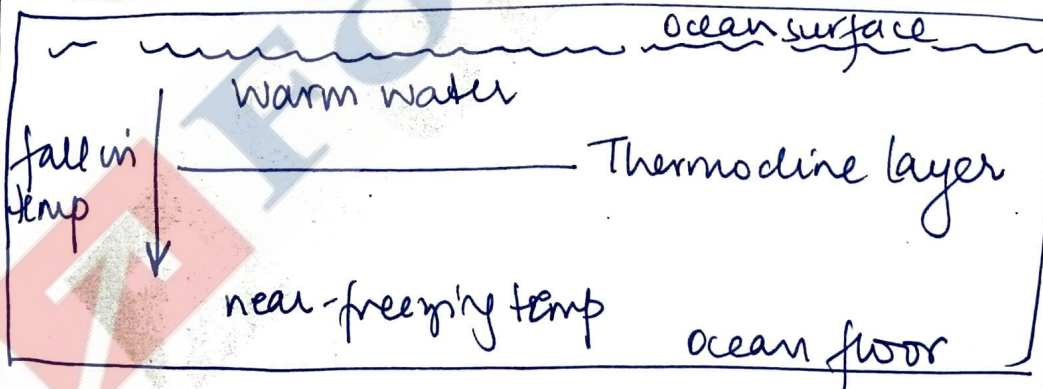 ocean surface
warm water
fall in
temp
Thermocline layer
near-freezing temp
ocean floor